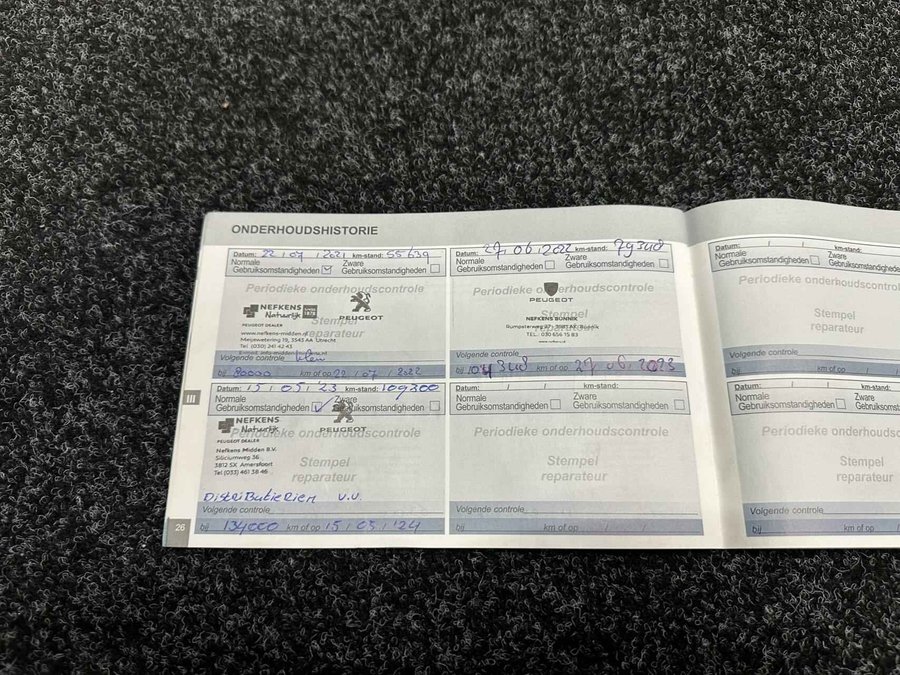 ONDERHOUDSHISTORIE
Datum: 22 / 07 / 2021 km-stand: 55639
Normale Gebruiksomstandigheden Zware Gebruiksomstandigheden
Periodieke onderhoudscontrole
NEFKENS
Natuurlijk
PEUGEOT DEALER
PEUGEOT
Stempel
reparateur
www.nefkens-midden.nl
Meijewetering 19, 3543 AA Utrecht
Tel. (030) 241 42 43
Volgende controle klein
bij 80000 km of op 22 / 07 / 2022
Datum: 27 / 06 / 2022 km-stand: 79348
Normale Gebruiksomstandigheden Zware Gebruiksomstandigheden
Periodieke onderhoudscontrole
PEUGEOT
NEFKENS BUNNIK
Rumpsterweg 27 - 3981 AK Bunnik
TEL.: 030 656 15 83
Volgende controle
bij 104348 km of op 27 / 06 / 2023
Datum: 15 / 05 / 23 km-stand: 109300
Normale Gebruiksomstandigheden Zware Gebruiksomstandigheden
Periodieke onderhoudscontrole
NEFKENS
Natuurlijk
PEUGEOT DEALER
PEUGEOT
Nefkens Midden B.V.
Siliciumweg 36
3812 SX Amersfoort
Tel (033) 461 38 46
Stempel
reparateur
Distributieriem v.v.
Volgende controle
bij 134000 km of op 15 / 05 / '24
Datum: / / km-stand:
Normale Gebruiksomstandigheden Zware Gebruiksomstandigheden
Periodieke onderhoudscontrole
Stempel
reparateur
Volgende controle
bij km of op / /
Datum: / / km-stand:
Normale Gebruiksomstandigheden Zware
Periodieke
Stempel
reparateur
Volgende controle
bij km of op
Datum: / / km-stand:
Normale Gebruiksomstandigheden Zware
Periodieke
Stempel
reparateur
Volgende controle
bij km of op
III
26